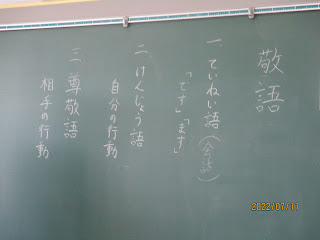 敬語
一 ていねい語(会話)
「です」「ます」
二 けんじょう語
自分の行動
三 尊敬語
相手の行動
2022/07/11